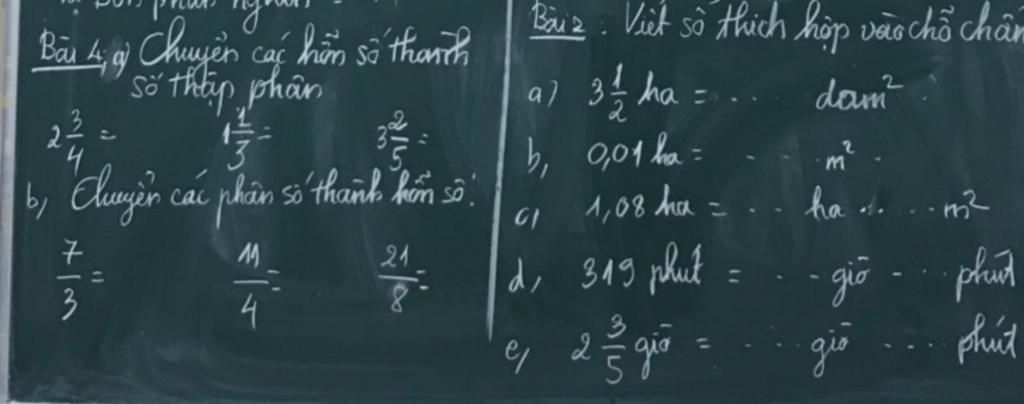 Bài 4, a) Chuyển các hỗn số thành
số thập phân
2 3/4 = 1 1/3 = 3 2/5 =
b, Chuyển các phân số thành hỗn số.
7/3 = 11/4 = 21/8 =
Bài 2. Viết số thích hợp vào chỗ chấm
a) 3 1/2 ha = ... dam²
b, 0,01 ha = .. m²
c, 1,08 ha = ... ha .... m²
d, 319 phút = ... giờ .... phút
e, 2 3/5 giờ = .... giờ .... phút